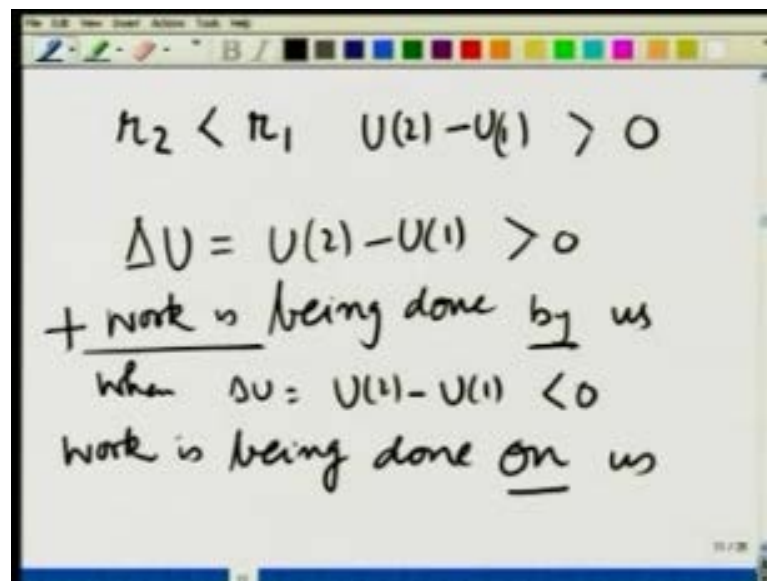 File Edit View Insert Actions Tools Help
B I
r₂ < r₁ U(2) - U(1) > 0
ΔU = U(2) - U(1) > 0
+ work is being done by us
when ΔU = U(2) - U(1) < 0
work is being done on us